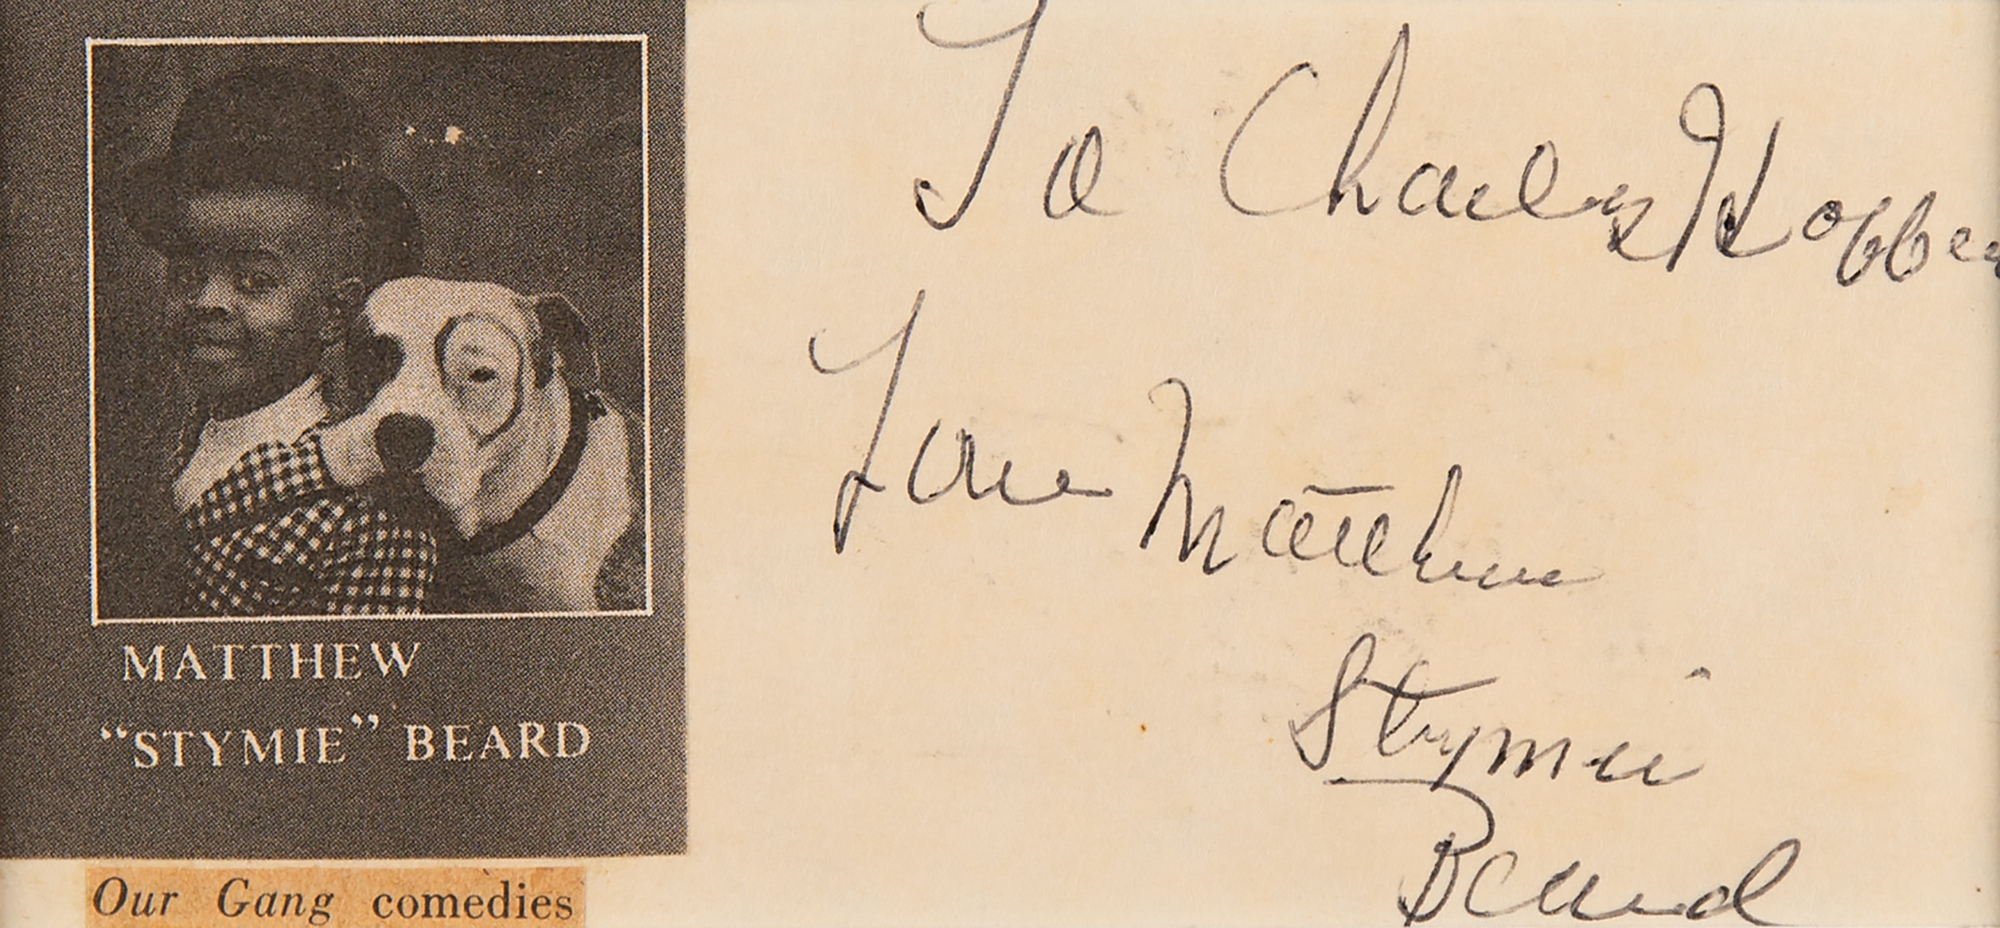 MATTHEW
“STYMIE” BEARD
Our Gang comedies
To Charles
Love Matthew
Stymie
Beard